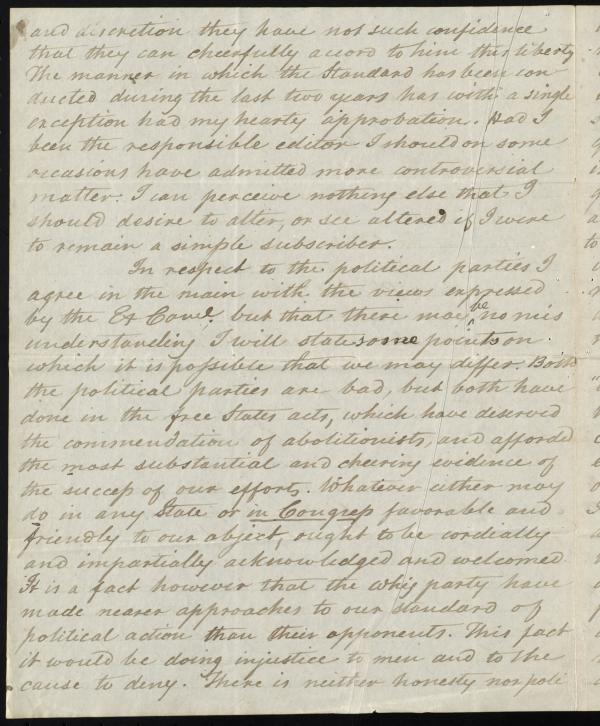 and discretion they have not such confidence
that they can cheerfully accord to him this liberty
The manner in which the Standard has been con
ducted during the last two years has with a single
exception had my hearty approbation. Had I
been the responsible editor I should on some
occasions have admitted more controversial
matter. I can perceive nothing else that I
should desire to alter, or see altered if I were
to remain a simple subscriber.
In respect to the political parties I
agree in the main with the views expressed
by the Ex Com. but that there may be no mis
understanding I will state some points on
which it is possible that we may differ. Both
the political parties are bad, but both have
done in the free States acts, which have deserved
the commendation of abolitionists, and afforded
the most substantial and cheering evidence of
the success of our efforts. Whatever either may
do in any State or in Congress favorable and
friendly to our object, ought to be cordially
and impartially acknowledged and welcomed.
It is a fact however that the whig party have
made nearer approaches to our standard of
political action than their opponents. This fact
it would be doing injustice to men and to the
cause to deny. There is neither honesty nor poli